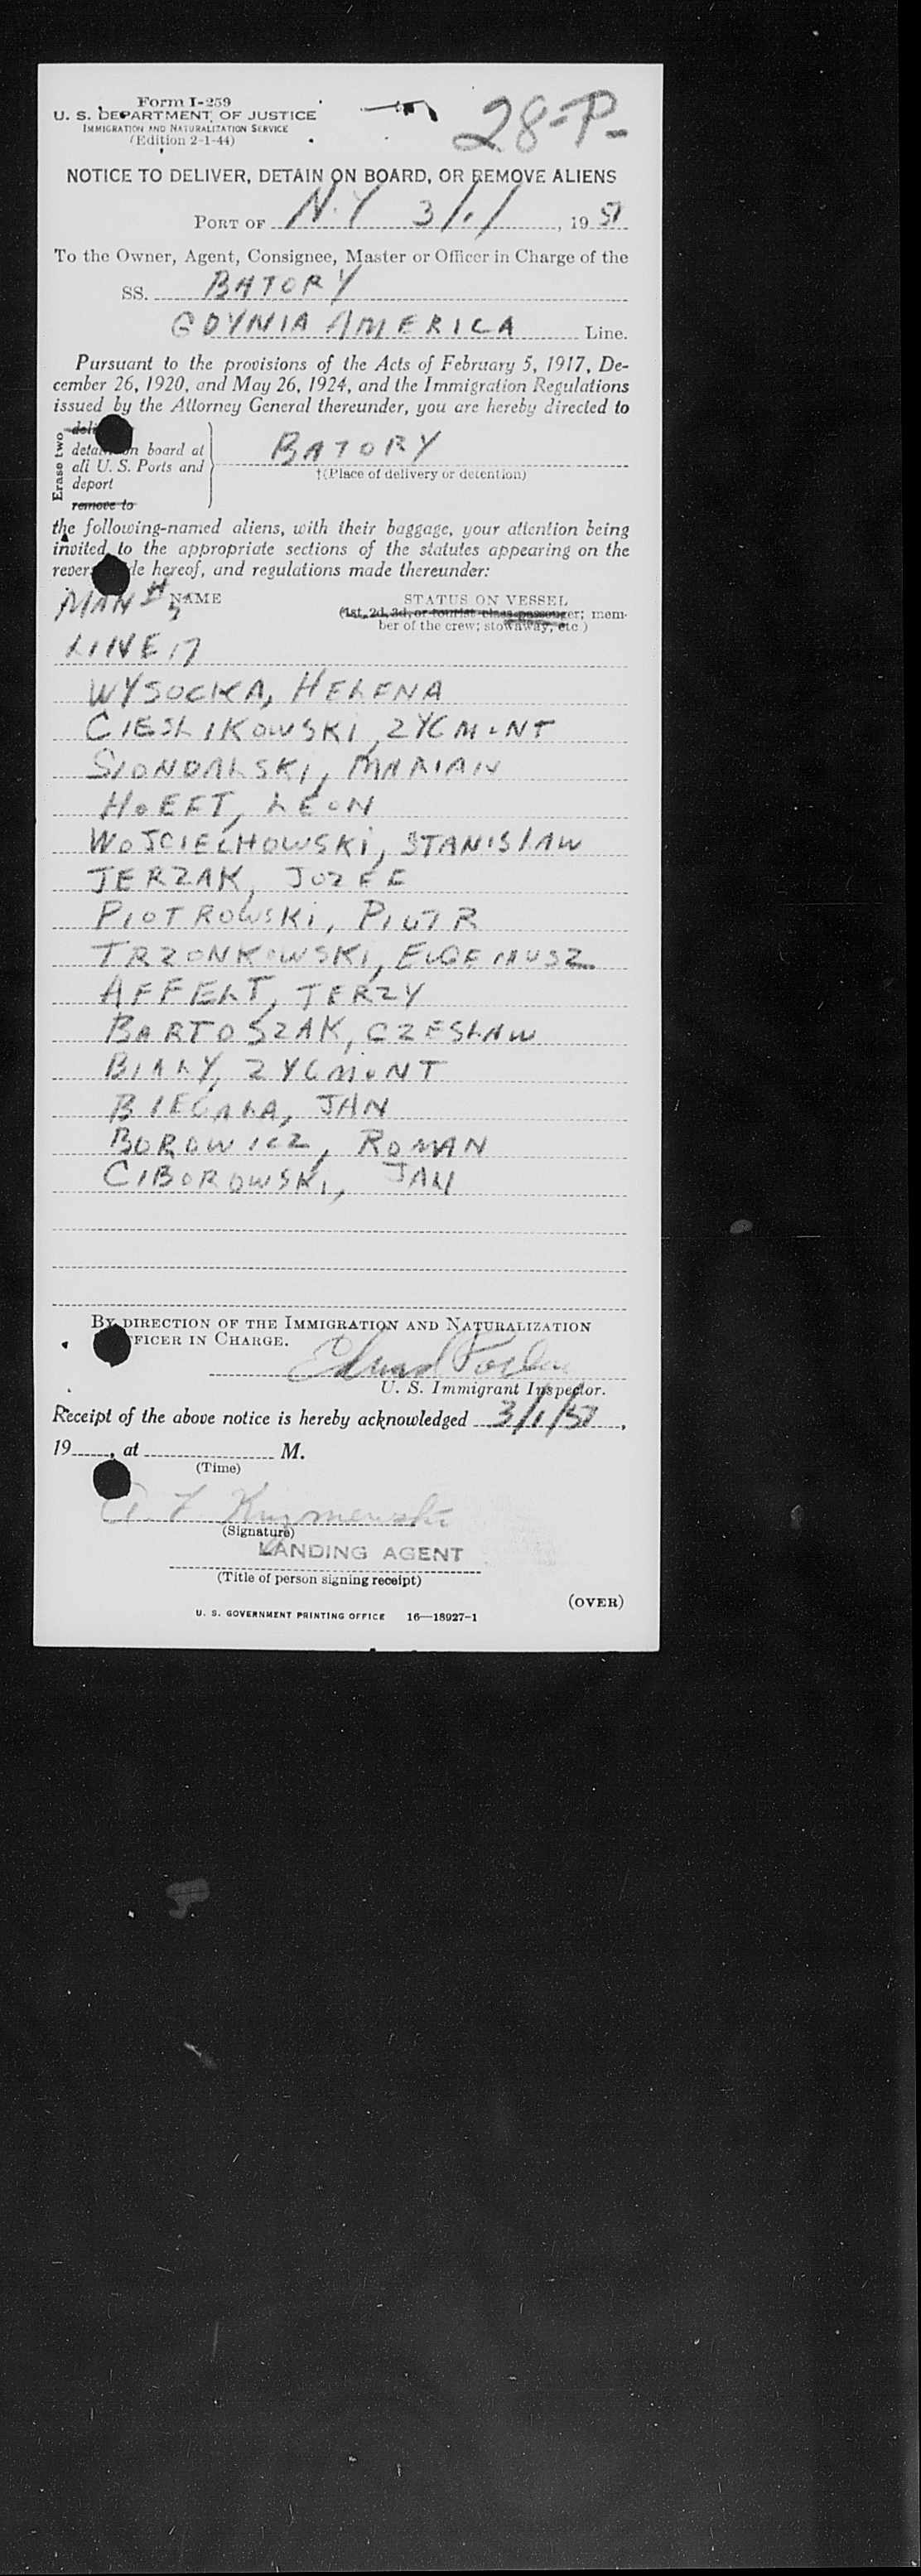 Form I-259
U. S. DEPARTMENT OF JUSTICE
IMMIGRATION AND NATURALIZATION SERVICE
(Edition 2-1-44)
28-P-
NOTICE TO DELIVER, DETAIN ON BOARD, OR REMOVE ALIENS
PORT OF N.Y 3/1/, 19 51
To the Owner, Agent, Consignee, Master or Officer in Charge of the
SS. BATORY
GDYNIA AMERICA Line.
Pursuant to the provisions of the Acts of February 5, 1917, De-
cember 26, 1920, and May 26, 1924, and the Immigration Regulations
issued by the Attorney General thereunder, you are hereby directed to
Erase two
on board at
all U. S. Ports and
deport
remove to
BATORY
†(Place of delivery or detention)
the following-named aliens, with their baggage, your attention being
invited to the appropriate sections of the statutes appearing on the
hereof, and regulations made thereunder:
NAME STATUS ON VESSEL
(1st, 2d, 3d, or tourist class passenger; mem-
ber of the crew; stowaway, etc.)
LINE 17
WYSOCKA, HELENA
CIESLIKOWSKI, ZYGMUNT
MARIAN
HOEFT, LEON
WOJCIECHOWSKI, STANISLAW
JERZAK, JOZEF
PIOTROWSKI, PIOTR
TRZONKOWSKI,
AFFELT, JERZY
BARTOSZAK, CZESLAW
BIALY, ZYGMUNT
BIEGALA, JAN
BOROWICZ, ROMAN
CIBOROWSKI, JAN
BY DIRECTION OF THE IMMIGRATION AND NATURALIZATION
OFFICER IN CHARGE.
U. S. Immigrant Inspector.
Receipt of the above notice is hereby acknowledged 3/1/51,
19 , at M.
(Time)
(Signature)
LANDING AGENT
(Title of person signing receipt)
(OVER)
U. S. GOVERNMENT PRINTING OFFICE 16—18927-1